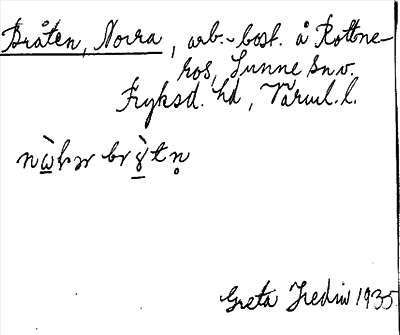 Bråten, Norra, arb.-bost. å Rottne-
ros, Sunne sn.v.
Fryksd. hd, Värml.l.
Greta Hedin 1935